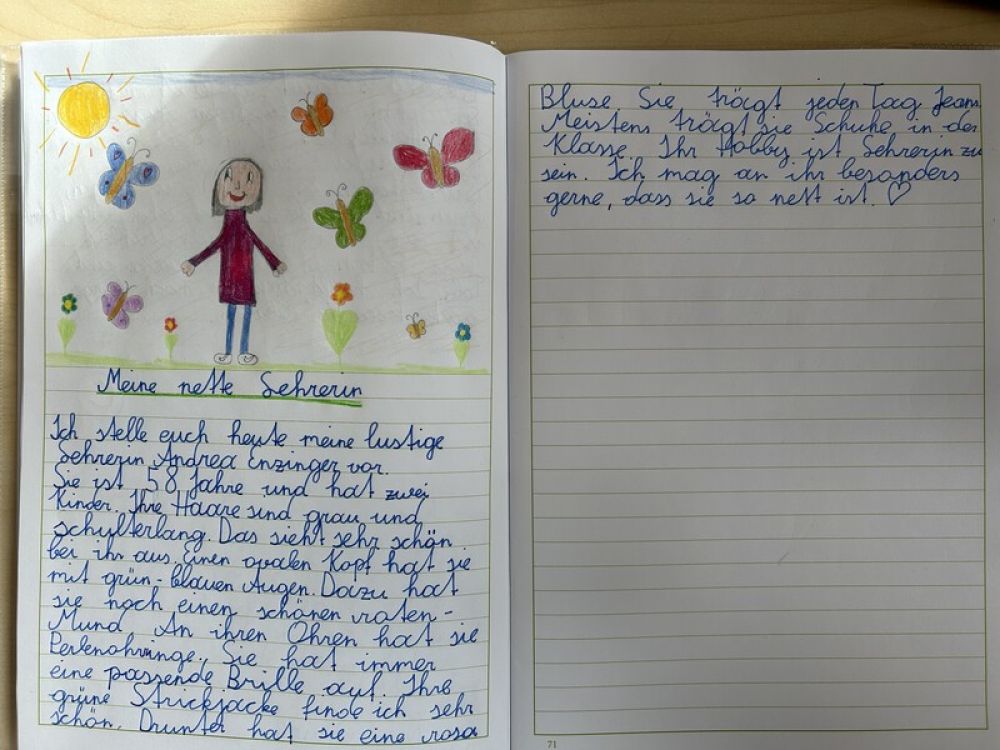 Meine nette Lehrerin
Ich stelle euch heute meine lustige
Lehrerin Andrea Enzinger vor.
Sie ist 58 Jahre und hat zwei
Kinder. Ihre Haare sind grau und
schulterlang. Das sieht sehr schön
bei ihr aus. Einen ovalen Kopf hat sie
mit grün-blauen Augen. Dazu hat
sie noch einen schönen roten-
Mund. An ihren Ohren hat sie
Perlenohrringe. Sie hat immer
eine passende Brille auf. Ihre
grüne Strickjacke finde ich sehr
schön. Drunter hat sie eine rosa
Bluse. Sie trägt jeden Tag Jeans.
Meistens trägt sie Schuhe in der
Klasse. Ihr Hobby ist Lehrerin zu
sein. Ich mag an ihr besonders
gerne, dass sie so nett ist. ♡
71